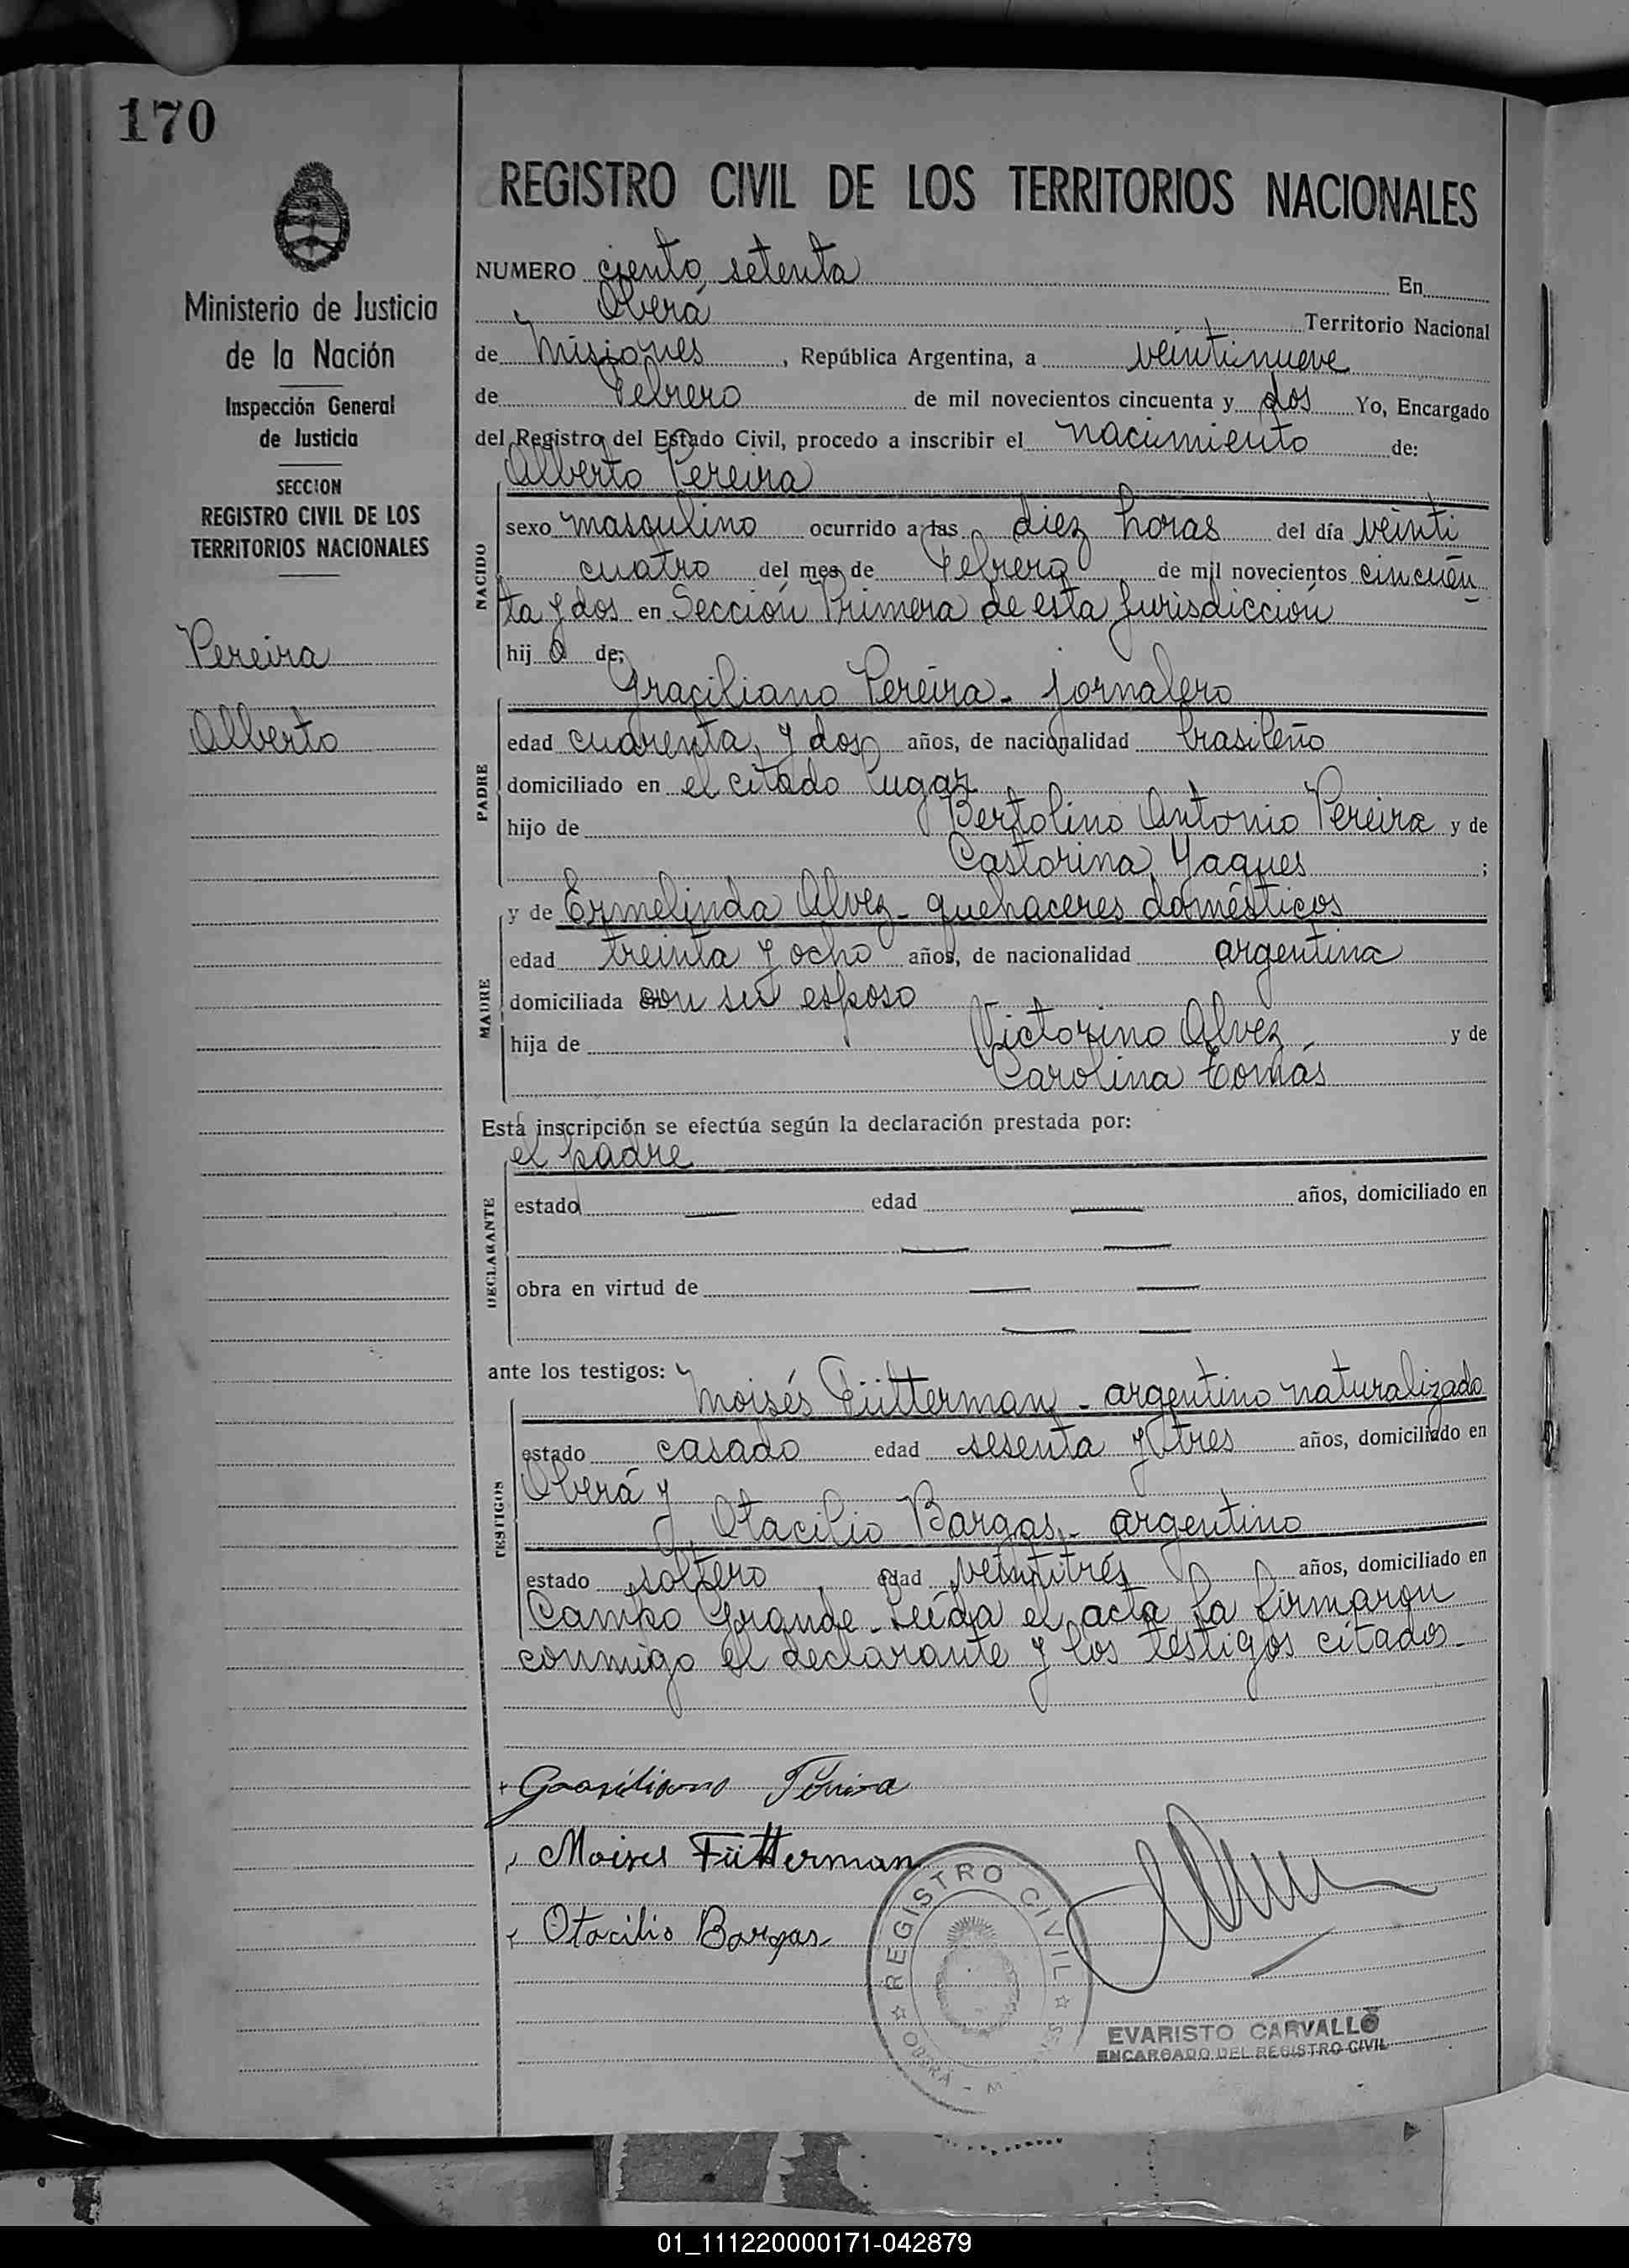 170
Ministerio de Justicia
de la Nación
Inspección General
de Justicia
SECCION
REGISTRO CIVIL DE LOS
TERRITORIOS NACIONALES
Pereira
Alberto
REGISTRO CIVIL DE LOS TERRITORIOS NACIONALES
NUMERO ciento setenta En
Oberá Territorio Nacional
de Misiones, República Argentina, a veintinueve
de Febrero de mil novecientos cincuenta y dos Yo, Encargado
del Registro del Estado Civil, procedo a inscribir el nacimiento de:
Alberto Pereira
NACIDO
sexo masculino ocurrido a las diez horas del día veinti
cuatro del mes de Febrero de mil novecientos cincuen
ta y dos en Sección Primera de esta jurisdicción
hij o de:
Graciliano Pereira - jornalero
PADRE
edad cuarenta y dos años, de nacionalidad brasileño
domiciliado en el citado lugar
hijo de Bertolino Antonio Pereira y de
Castorina Yaques ;
y de Ermelinda Alvez - quehaceres domésticos
MADRE
edad treinta y ocho años, de nacionalidad argentina
domiciliada con su esposo
hija de Victorino Alvez y de
Carolina Tomás
Esta inscripción se efectúa según la declaración prestada por:
el padre
DECLARANTE
estado — edad — años, domiciliado en
— —
obra en virtud de — —
— —
ante los testigos: Moisés Fütterman - argentino naturalizado
TESTIGOS
estado casado edad sesenta y tres años, domiciliado en
Oberá y
y Otacilio Bargas - argentino
estado soltero, edad veintitrés años, domiciliado en
Campo Grande - Leída el acta la firmaron
conmigo el declarante y los testigos citados -
Graciliano Pereira
Moises Fütterman
Otacilio Bargas
REGISTRO CIVIL
OBERA - M
EVARISTO CARVALLO
ENCARGADO DEL REGISTRO CIVIL
01_111220000171-042879